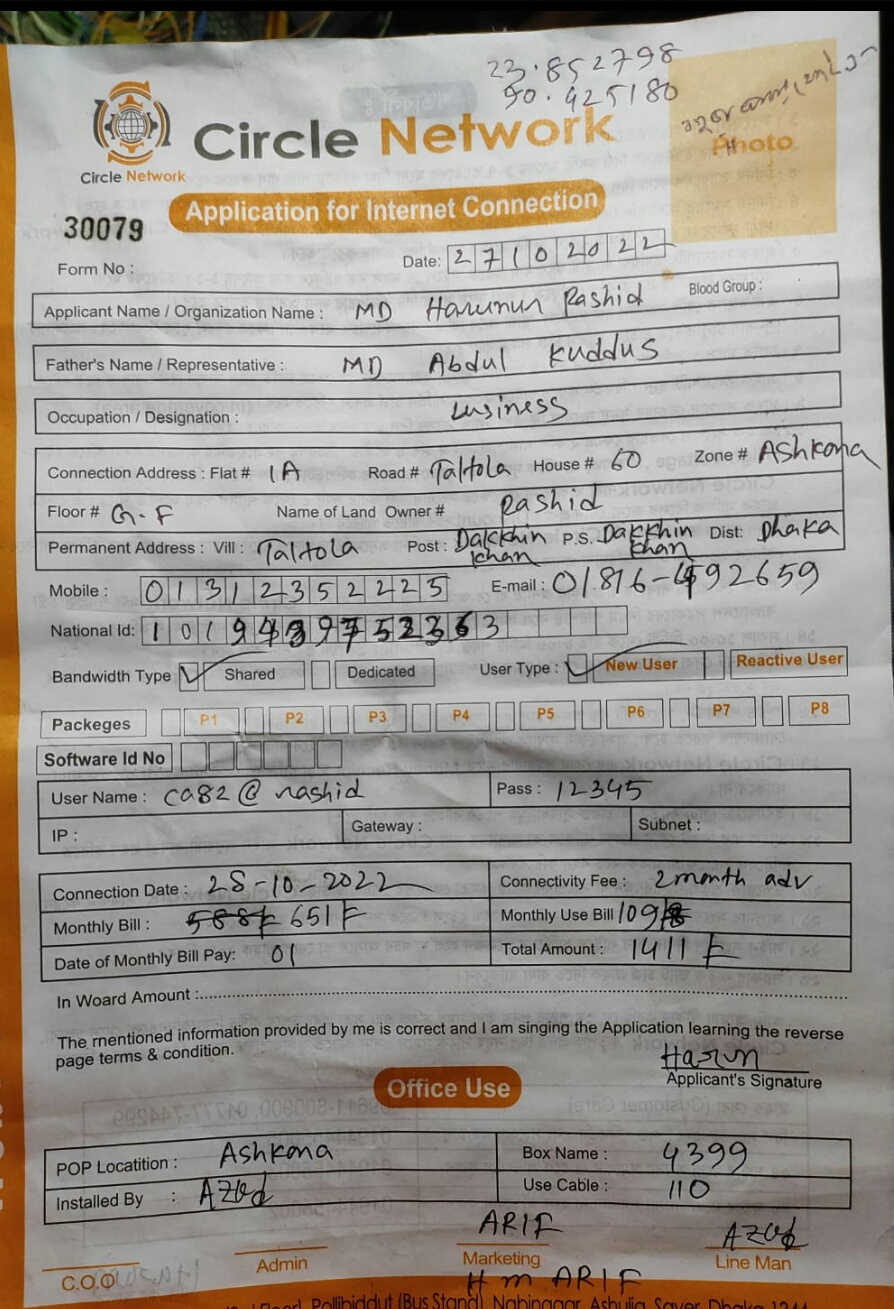 23.852798
90.425180
Circle Network
Circle Network
Photo
Application for Internet Connection
30079
Form No :
Date: 27102022
Applicant Name / Organization Name : MD Harunur Rashid Blood Group :
Father's Name / Representative : MD Abdul Kuddus
Occupation / Designation : business
Connection Address : Flat # 1A Road # Taltola House # 60 Zone # Ashkona
Floor # G.F Name of Land Owner # Rashid
Permanent Address : Vill : Taltola Post : Dakkhin khan P.S. Dakkhin khan Dist: Dhaka
Mobile : 01312352225 E-mail : 01876-492659
National Id:
Bandwidth Type Shared Dedicated User Type : New User Reactive User
Packeges P1 P2 P3 P4 P5 P6 P7 P8
Software Id No
User Name : ca82@rashid Pass : 12345
IP : Gateway : Subnet :
Connection Date : 28-10-2022 Connectivity Fee : 2 month adv
Monthly Bill : 651 Monthly Use Bill 109
Date of Monthly Bill Pay: 01 Total Amount : 1411
In Woard Amount :
The mentioned information provided by me is correct and I am singing the Application learning the reverse
page terms & condition.
Harun
Applicant's Signature
Office Use
POP Locatition : Ashkona Box Name : 4399
Installed By : Azad Use Cable : 110
ARIF Azad
C.O.O Admin Marketing Line Man
H m ARIF
Pallibiddut (Bus Stand), Nabinagar, Ashulia, Savar, Dhaka